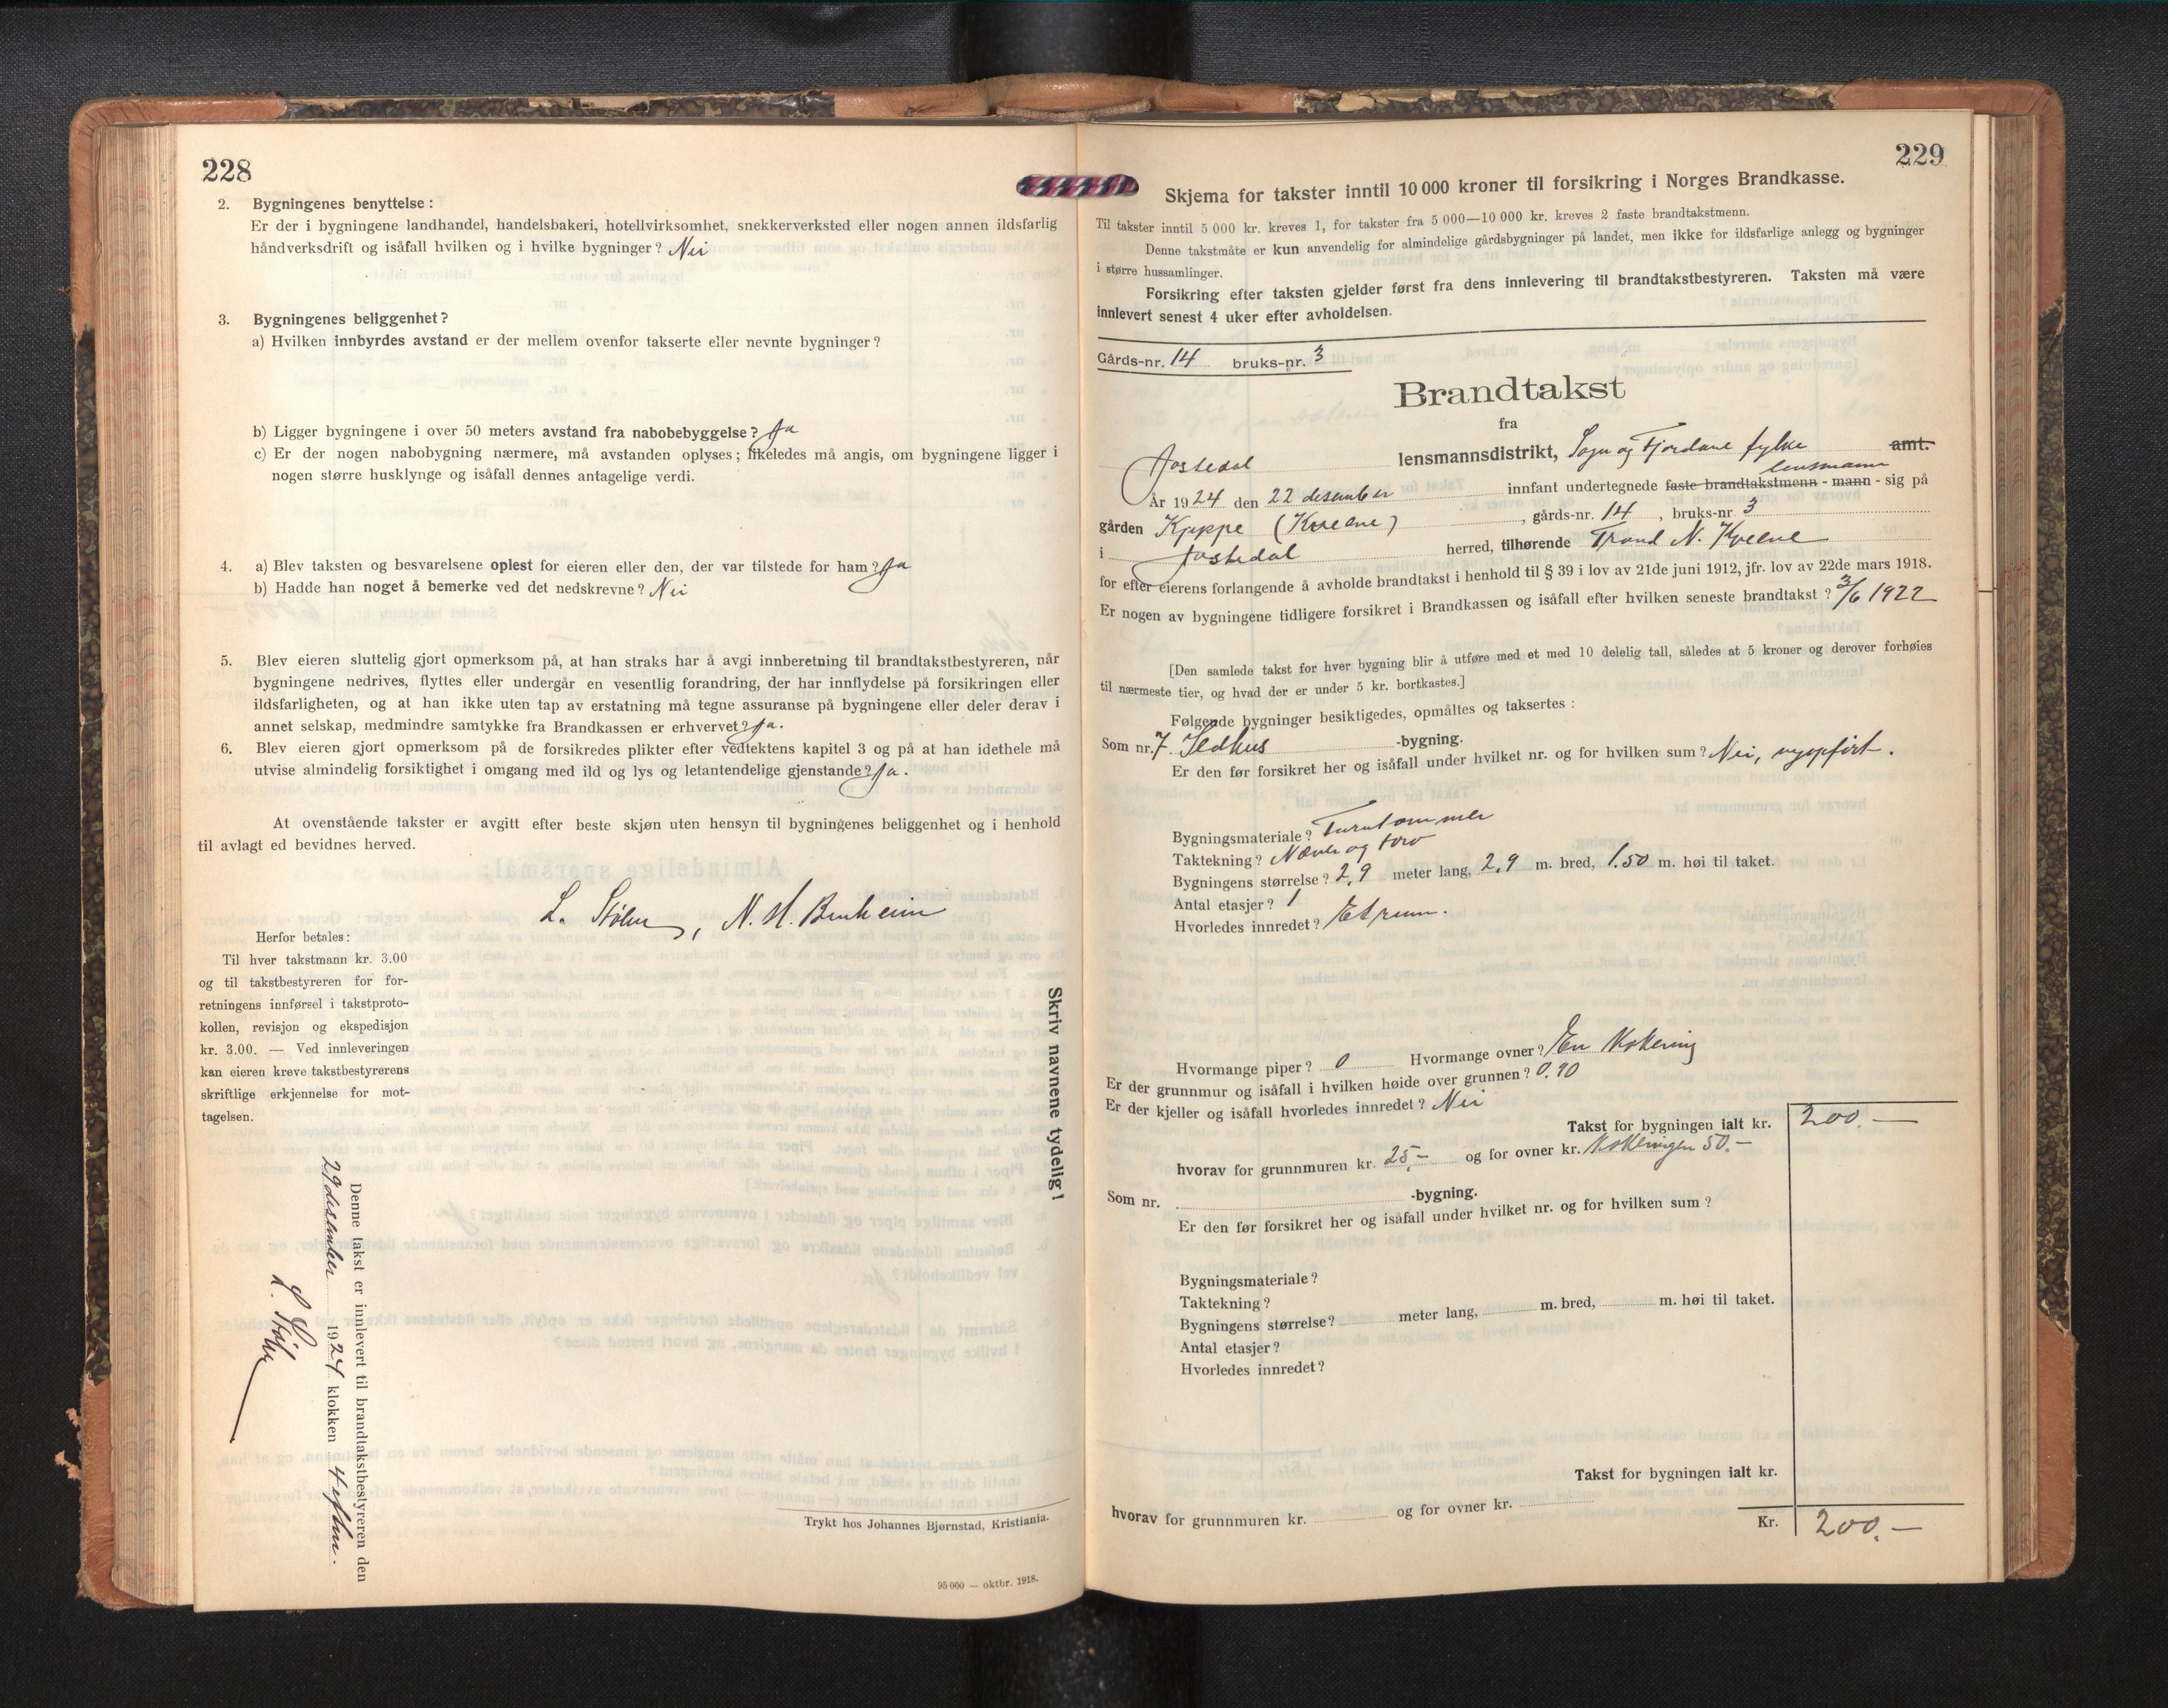 228
2. Bygningenes benyttelse :
Er der i bygningene landhandel, handelsbakeri, hotellvirksomhet, snekkerverksted eller nogen annen ildsfarlig
håndverksdrift og isåfall hvilken og i hvilke bygninger ? Nei
3. Bygningenes beliggenhet ?
a) Hvilken innbyrdes avstand er der mellem ovenfor takserte eller nevnte bygninger ?
b) Ligger bygningene i over 50 meters avstand fra nabobebyggelse ? Ja
c) Er der nogen nabobygning nærmere, må avstanden oplyses ; likeledes må angis, om bygningene ligger i
nogen større husklynge og isåfall dennes antagelige verdi.
4. a) Blev taksten og besvarelsene oplest for eieren eller den, der var tilstede for ham ? Ja
b) Hadde han noget å bemerke ved det nedskrevne ? Nei
5. Blev eieren sluttelig gjort opmerksom på, at han straks har å avgi innberetning til brandtakstbestyreren, når
bygningene nedrives, flyttes eller undergår en vesentlig forandring, der har innflydelse på forsikringen eller
ildsfarligheten, og at han ikke uten tap av erstatning må tegne assuranse på bygningene eller deler derav i
annet selskap, medmindre samtykke fra Brandkassen er erhvervet ? Ja.
6. Blev eieren gjort opmerksom på de forsikredes plikter efter vedtektens kapitel 3 og på at han idethele må
utvise almindelig forsiktighet i omgang med ild og lys og letantendelige gjenstande ? Ja.
At ovenstående takster er avgitt efter beste skjøn uten hensyn til bygningenes beliggenhet og i henhold
til avlagt ed bevidnes herved.
L. Stølen, N. H.
Herfor betales :
Til hver takstmann kr. 3.00
og til takstbestyreren for for-
retningens innførsel i takstproto-
kollen, revisjon og ekspedisjon
kr. 3.00. — Ved innleveringen
kan eieren kreve takstbestyrerens
skriftlige erkjennelse for mot-
tagelsen.
Skriv navnene tydelig !
Denne takst er innlevert til brandtakstbestyreren den
29 desember 1924 klokken 4 efter.
L. Stølen
Trykt hos Johannes Bjørnstad, Kristiania.
95 000 — oktbr. 1918.
229
Skjema for takster inntil 10 000 kroner til forsikring i Norges Brandkasse.
Til takster inntil 5 000 kr. kreves 1, for takster fra 5 000—10 000 kr. kreves 2 faste brandtakstmenn.
Denne takstmåte er kun anvendelig for almindelige gårdsbygninger på landet, men ikke for ildsfarlige anlegg og bygninger
i større hussamlinger.
Forsikring efter taksten gjelder først fra dens innlevering til brandtakstbestyreren. Taksten må være
innlevert senest 4 uker efter avholdelsen.
Gårds-nr. 14 bruks-nr. 3
Brandtakst
fra
Jostedal lensmannsdistrikt, Sogn og Fjordane fylke amt.
lensmann
År 1924 den 22 desember innfant undertegnede faste brandtakstmenn - mann - sig på
gården Kjeppe (Kveene), gårds-nr. 14, bruks-nr. 3
i Jostedal herred, tilhørende Trond N. Kveene
for efter eierens forlangende å avholde brandtakst i henhold til § 39 i lov av 21de juni 1912, jfr. lov av 22de mars 1918.
Er nogen av bygningene tidligere forsikret i Brandkassen og isåfall efter hvilken seneste brandtakst ? 3/6 1922
[Den samlede takst for hver bygning blir å utføre med et med 10 delelig tall, således at 5 kroner og derover forhøies
til nærmeste tier, og hvad der er under 5 kr. bortkastes.]
Følgende bygninger besiktigedes, opmåltes og taksertes :
Som nr. 7. Ildhus -bygning.
Er den før forsikret her og isåfall under hvilket nr. og for hvilken sum ? Nei, nyopført.
Bygningsmateriale ? Furutømmer
Taktekning ? Næver og torv
Bygningens størrelse ? 2,9 meter lang, 2,9 m. bred, 1.50 m. høi til taket.
Antal etasjer ? 1
Hvorledes innredet ? Et rum.
Hvormange piper ? 0 Hvormange ovner ? En kokering
Er der grunnmur og isåfall i hvilken høide over grunnen ? 0.90
Er der kjeller og isåfall hvorledes innredet ? Nei
Takst for bygningen ialt kr. 200.—
hvorav for grunnmuren kr. 25,— og for ovner kr. Kokeringen 50.—
Som nr. -bygning.
Er den før forsikret her og isåfall under hvilket nr. og for hvilken sum ?
Bygningsmateriale ?
Taktekning ?
Bygningens størrelse ? meter lang, m. bred, m. høi til taket.
Antal etasjer ?
Hvorledes innredet ?
Takst for bygningen ialt kr.
hvorav for grunnmuren kr. og for ovner kr.
Kr. 200.—